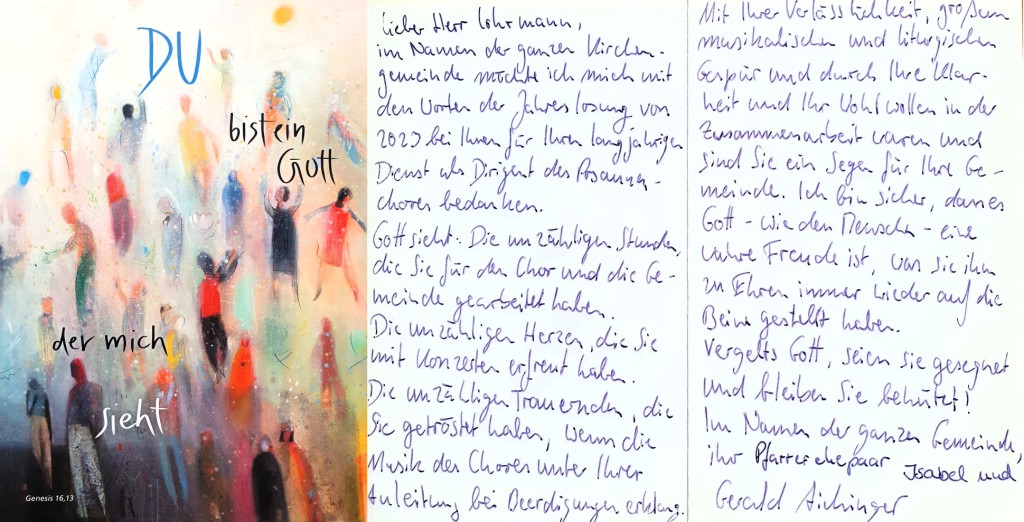 DU
bist ein
Gott
der mich
sieht
Genesis 16,13
Lieber Herr Lohrmann,
im Namen der ganzen Kirchen-
gemeinde möchte ich mich mit
den Worten der Jahreslosung von
2023 bei Ihnen für Ihren langjährigen
Dienst als Dirigent des Posaunen-
chores bedanken.
Gott sieht: Die unzähligen Stunden,
die Sie für den Chor und die Ge-
meinde gearbeitet haben.
Die unzähligen Herzen, die Sie
mit Konzerten erfreut haben.
Die unzähligen Trauernden, die
Sie getröstet haben, wenn die
Musik des Chores unter Ihrer
Anleitung bei Beerdigungen erklang.
Mit Ihrer Verlässlichkeit, großem
musikalischen und liturgischen
Gespür und durch Ihre Klar-
heit und Ihr Wohlwollen in der
Zusammenarbeit waren und
sind Sie ein Segen für Ihre Ge-
meinde. Ich bin sicher, dass es
Gott - wie den Menschen - eine
wahre Freude ist, was sie ihm
zu Ehren immer wieder auf die
Beine gestellt haben.
Vergelts Gott, seien sie gesegnet
und bleiben Sie behütet!
Im Namen der ganzen Gemeinde,
ihr Pfarrerehepaar Isabel und
Gerald Aichinger